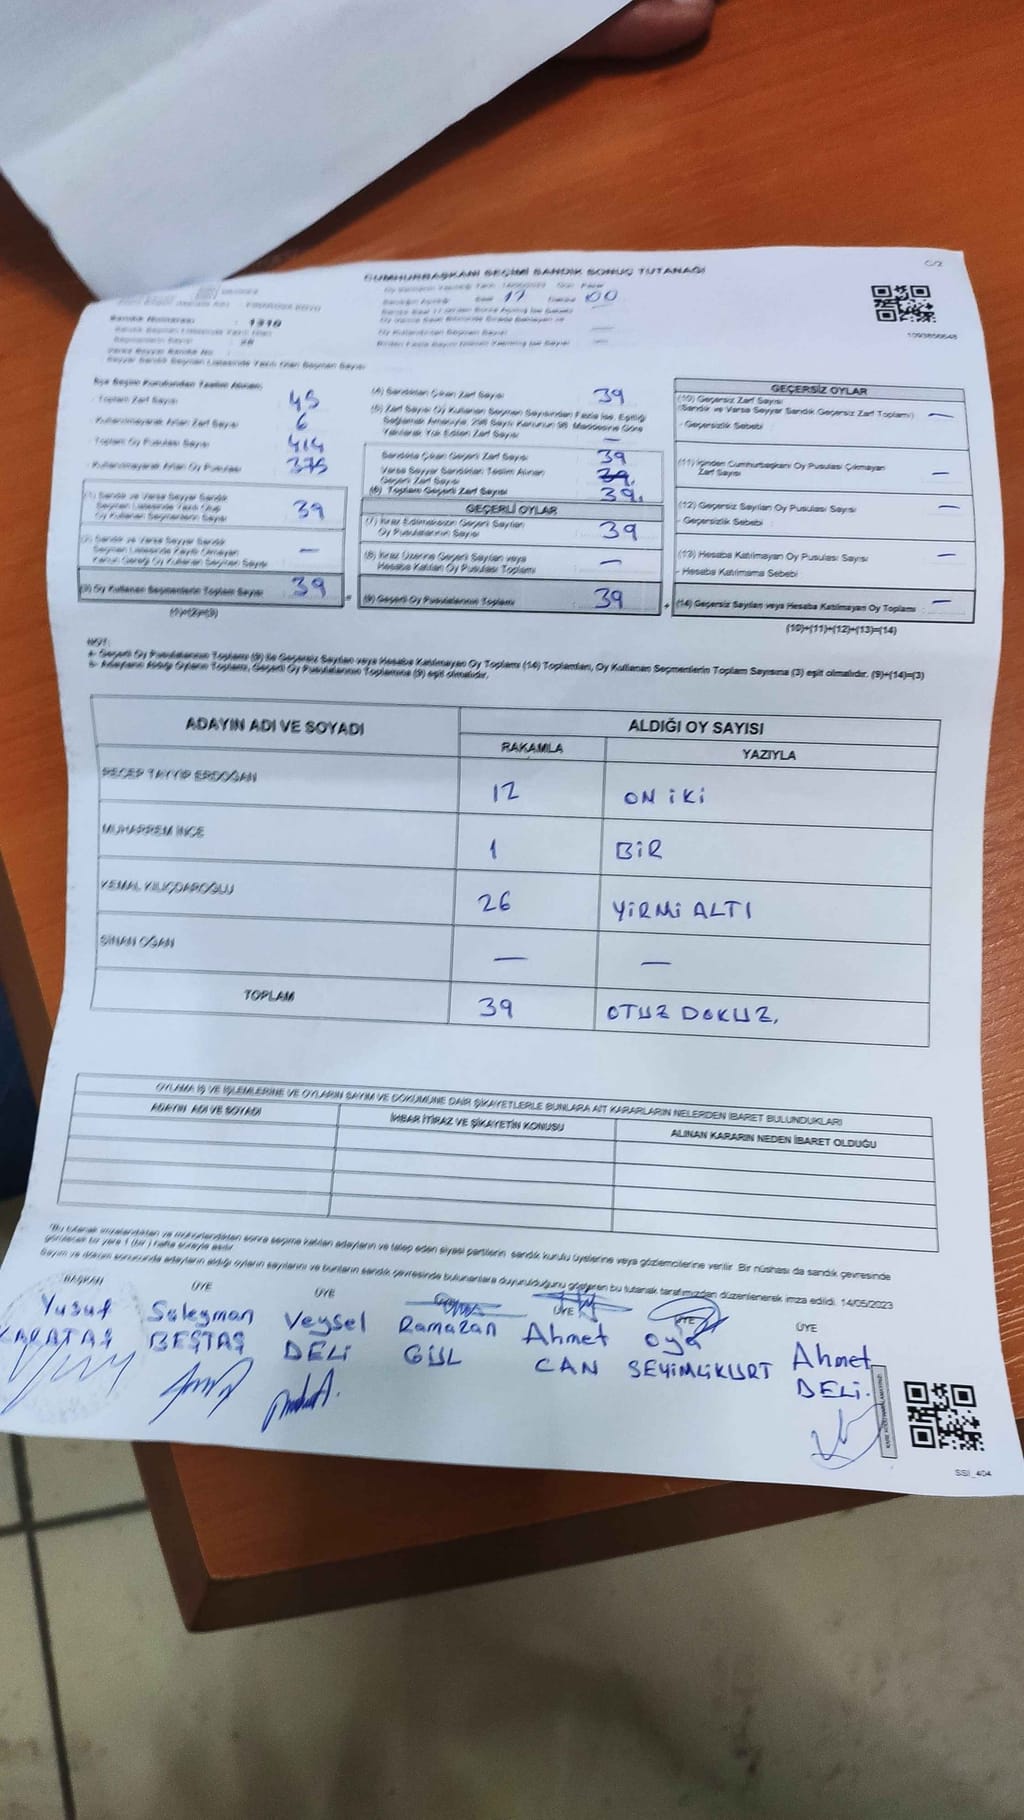 C/2
CUMHURBAŞKANI SEÇİMİ SANDIK SONUÇ TUTANAĞI
17 00
Sandık Numarası : 1310
1093856648
İlçe Seçim Kurulundan Teslim Alınan;
- Toplam Zarf Sayısı 45
- Kullanılmayarak Artan Zarf Sayısı 6
- Toplam Oy Pusulası Sayısı 414
- Kullanılmayarak Artan Oy Pusulası 375
(1) Sandık ve Varsa Seyyar Sandık
Seçmen Listesinde Yazılı Olup
Oy Kullanan Seçmenlerin Sayısı 39
(2) Sandık ve Varsa Seyyar Sandık
Seçmen Listesinde Kayıtlı Olmayan
Kanun Gereği Oy Kullanan Seçmen Sayısı —
(3) Oy Kullanan Seçmenlerin Toplam Sayısı 39
(1)+(2)=(3)
(4) Sandıktan Çıkan Zarf Sayısı 39
(5) Zarf Sayısı Oy Kullanan Seçmen Sayısından Fazla İse, Eşitliği
Sağlamak Amacıyla, 298 Sayılı Kanunun 98. Maddesine Göre
Yakılarak Yok Edilen Zarf Sayısı —
Sandıkta Çıkan Geçerli Zarf Sayısı 39
Varsa Seyyar Sandıktan Teslim Alınan
Geçerli Zarf Sayısı 39.
(6) Toplam Geçerli Zarf Sayısı 39.
GEÇERLİ OYLAR
(7) İtiraz Edilmeksizin Geçerli Sayılan
Oy Pusulalarının Sayısı 39
(8) İtiraz Üzerine Geçerli Sayılan veya
Hesaba Katılan Oy Pusulası Toplamı —
(9) Geçerli Oy Pusulalarının Toplamı 39
GEÇERSİZ OYLAR
(10) Geçersiz Zarf Sayısı
(Sandık ve Varsa Seyyar Sandık Geçersiz Zarf Toplamı) —
- Geçersizlik Sebebi :
(11) İçinden Cumhurbaşkanı Oy Pusulası Çıkmayan
Zarf Sayısı —
(12) Geçersiz Sayılan Oy Pusulası Sayısı —
- Geçersizlik Sebebi :
(13) Hesaba Katılmayan Oy Pusulası Sayısı —
- Hesaba Katılmama Sebebi
(14) Geçersiz Sayılan veya Hesaba Katılmayan Oy Toplamı —
(10)+(11)+(12)+(13)=(14)
NOT:
a- Geçerli Oy Pusulalarının Toplamı (9) ile Geçersiz Sayılan veya Hesaba Katılmayan Oy Toplamı (14) Toplamları, Oy Kullanan Seçmenlerin Toplam Sayısına (3) eşit olmalıdır. (9)+(14)=(3)
b- Adayların Aldığı Oyların Toplamı, Geçerli Oy Pusulalarının Toplamına (9) eşit olmalıdır.
ADAYIN ADI VE SOYADI ALDIĞI OY SAYISI
RAKAMLA YAZIYLA
RECEP TAYYİP ERDOĞAN 12 ON İKİ
MUHARREM İNCE 1 BİR
KEMAL KILIÇDAROĞLU 26 YİRMİ ALTI
SİNAN OĞAN — —
TOPLAM 39 OTUZ DOKUZ.
OYLAMA İŞ VE İŞLEMLERİNE VE OYLARIN SAYIM VE DÖKÜMÜNE DAİR ŞİKAYETLERLE BUNLARA AİT KARARLARIN NELERDEN İBARET BULUNDUKLARI
ADAYIN ADI VE SOYADI İHBAR İTİRAZ VE ŞİKAYETİN KONUSU ALINAN KARARIN NEDEN İBARET OLDUĞU
*Bu tutanak imzalandıktan ve mühürlendikten sonra seçime katılan adayların ve talep eden siyasi partilerin sandık kurulu üyelerine veya gözlemcilerine verilir. Bir nüshası da sandık çevresinde
görülecek bir yere 1 (bir) hafta süreyle asılır.
Sayım ve döküm sonucunda adayların aldığı oyların sayılarını ve bunların sandık çevresinde bulunanlara duyurulduğunu gösteren bu tutanak tarafımızdan düzenlenerek imza edildi. 14/05/2023
BAŞKAN ÜYE ÜYE ÜYE ÜYE ÜYE
Yusuf KARATAŞ
Süleyman BEŞTAŞ
Veysel DELİ
Ramazan GÜL
Ahmet CAN
Oya SEYİMLİKURT
Ahmet DELİ.
SSI_404